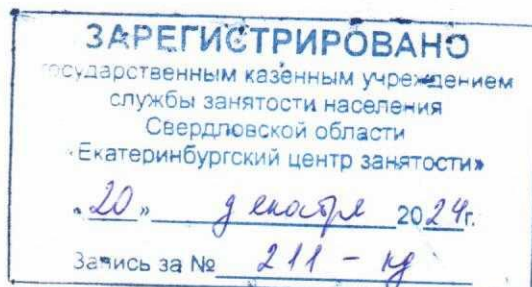 ЗАРЕГИСТРИРОВАНО
государственным казённым учреждением
службы занятости населения
Свердловской области
«Екатеринбургский центр занятости»
«20» декабря 2024г.
Запись за № 211 - кд